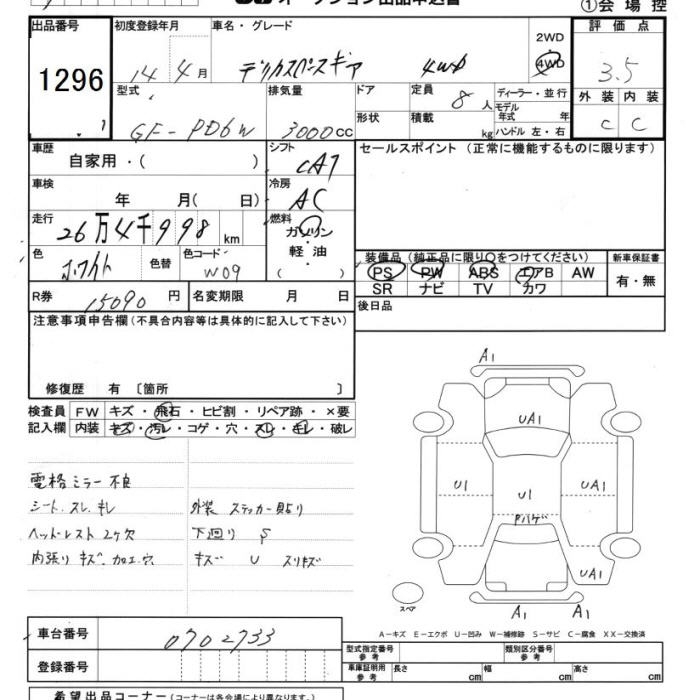 オークション出品申込書
①会場控
出品番号 初度登録年月 車名・グレード 2WD 評価点
1296 14年 4月 デリカスペースギア 4WD 4WD 3.5
型式 排気量 ドア 定員 8人 ディーラー・並行 外装 内装
GF-PD6W 3000cc 形状 積載 kg モデル年式 年 ハンドル 左・右 C C
車歴 自家用・( ) シフト CAT セールスポイント(正常に機能するものに限ります)
車検 年 月( 日) 冷房 AC
走行 26万4千998km 燃料 ガソリン・軽油 ( )
色 ホワイト 色替 色コード W09
装備品(純正品に限り○をつけてください) 新車保証書
PS PW ABS エアB AW 有・無
SR ナビ TV カワ
R券 15090円 名変期限 月 日 後日品
注意事項申告欄(不具合内容等は具体的に記入して下さい)
修復歴 有〔箇所 〕
検査員 FW キズ・飛石・ヒビ割・リペア跡・×要
記入欄 内装 キズ・汚レ・コゲ・穴・スレ・キレ・破レ
電格ミラー不良
シート、スレ、キレ 外装 ステッカー貼り
ヘッドレスト2ケ欠 下廻り S
内張りキズ、加工穴 キズ U スリキズ
A1
UA1
U1 U1 UA1
Pバゲ
UA1
スペア
A1 A1
A-キズ E-エクボ U-凹み W-補修跡 S-サビ C-腐食 XX-交換済
車台番号 0702733
型式指定番号 参考 類別区分番号 参考
登録番号
車庫証明用 参考 長さ cm 幅 cm 高さ cm
希望出品コーナー(コーナーは各会場により異なります。)